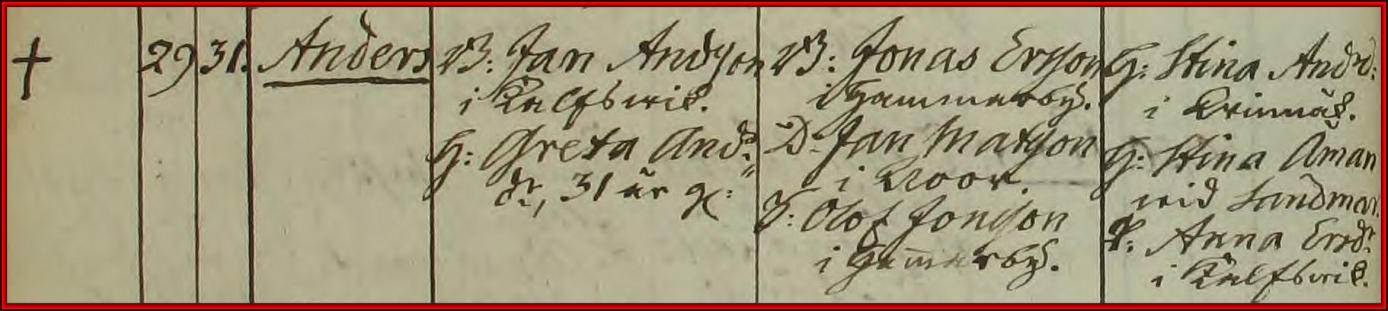 † 29 31. Anders
B: Jan Andsson
i Kalfswik.
H: Greta Andd:r
31 år g:
B: Jonas Ersson
i Hammarby.
D. Jan Matsson
i Noor.
D: Olof Jonsson
i Ham̄arby.
H: Stina Andd:
i
H: Stina Åman
wid Sandmar.
P: Anna Ersd:r
i Kalfswik.